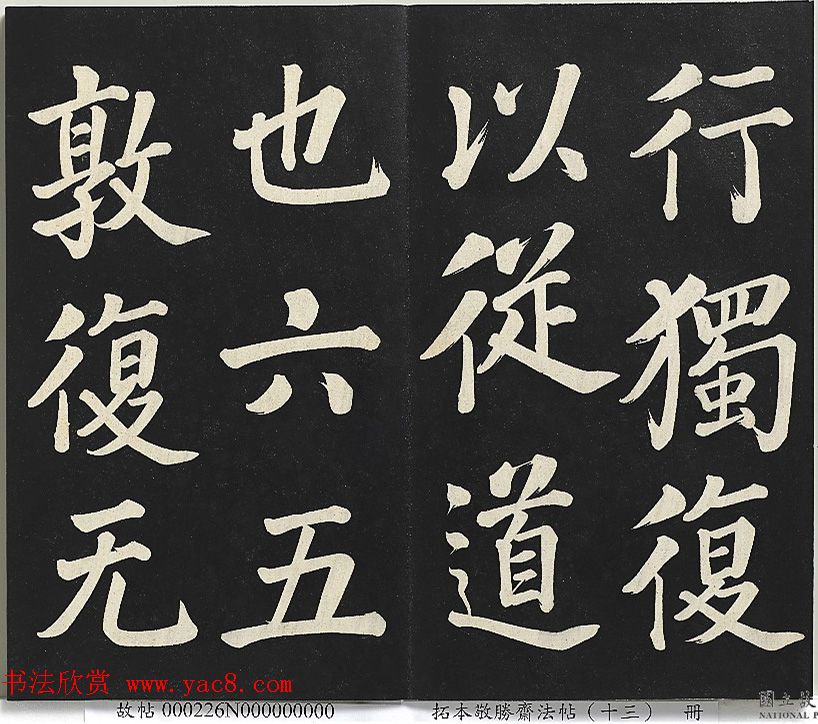 行獨復
以從道
也六五
敦復无
书法欣赏 www.yac8.com
故帖 000226N000000000
拓本敬勝齋法帖（十三） 冊
國立故
NATIONAL P